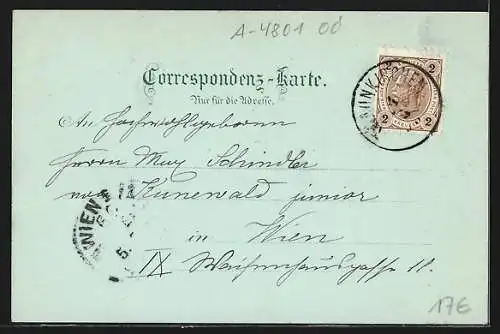 A-4801 Od
Correspondenz-Karte.
Nur für die Adresse.
An Hochwohlgeboren
Herrn Max Schindler
von Kunewald junior
in Wien
IX Waisenhausgasse 18.
TRAUNKIRCHEN
2 2
2 2
WIEN
5.
17€